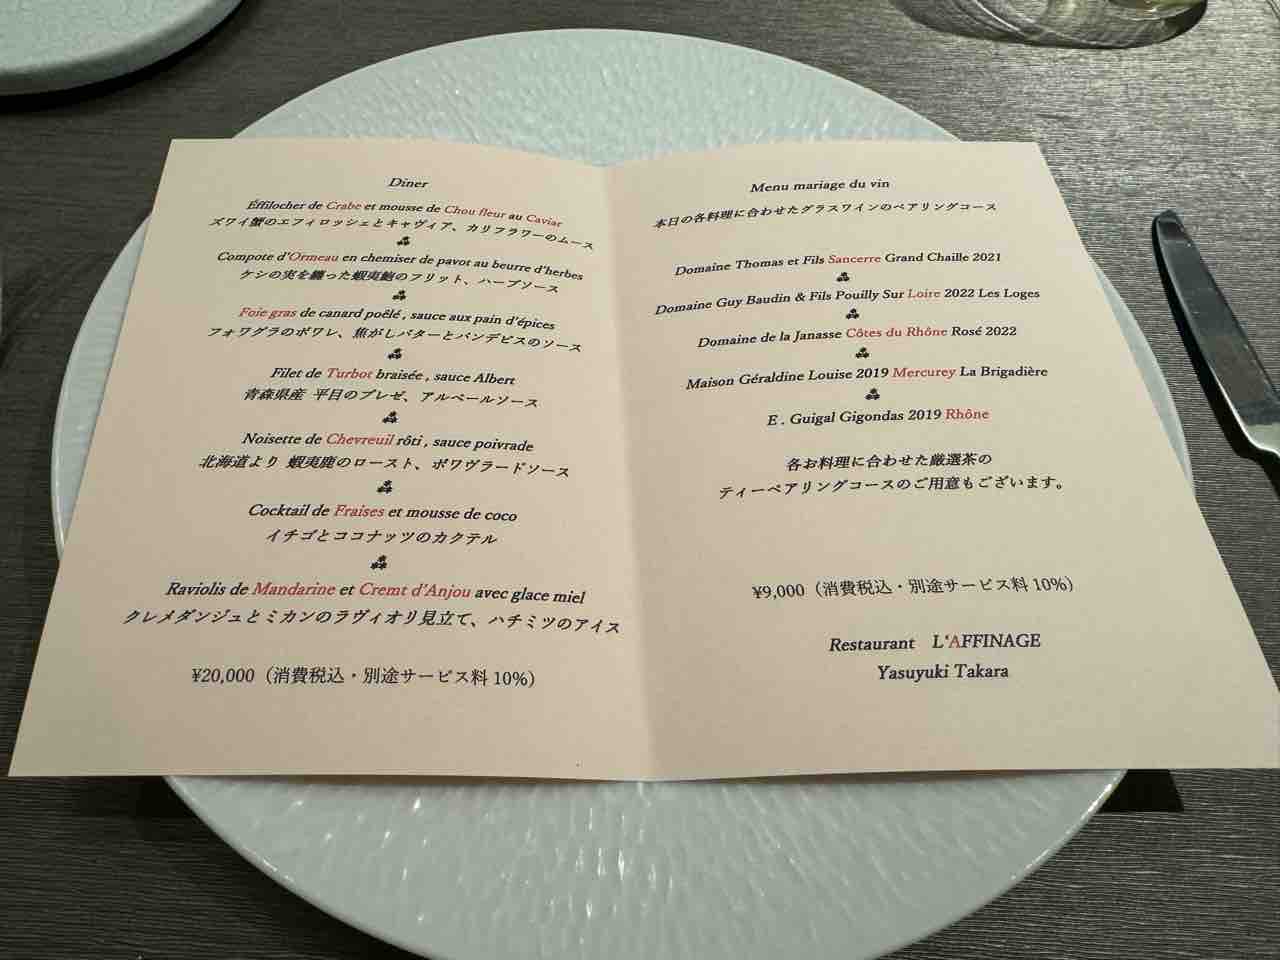 Dîner
Éffilocher de Crabe et mousse de Chou fleur au Caviar
ズワイ蟹のエフィロッシェとキャヴィア、カリフラワーのムース
Compote d'Ormeau en chemiser de pavot au beurre d'herbes
ケシの実を纏った蝦夷鮑のフリット、ハーブソース
Foie gras de canard poêlé , sauce aux pain d'épices
フォワグラのポワレ、焦がしバターとパンデピスのソース
Filet de Turbot braisée , sauce Albert
青森県産 平目のブレゼ、アルベールソース
Noisette de Chevreuil rôti , sauce poivrade
北海道より 蝦夷鹿のロースト、ポワヴラードソース
Cocktail de Fraises et mousse de coco
イチゴとココナッツのカクテル
Raviolis de Mandarine et Cremt d'Anjou avec glace miel
クレメダンジュとミカンのラヴィオリ見立て、ハチミツのアイス
¥20,000（消費税込・別途サービス料 10%）
Menu mariage du vin
本日の各料理に合わせたグラスワインのペアリングコース
Domaine Thomas et Fils Sancerre Grand Chaille 2021
Domaine Guy Baudin & Fils Pouilly Sur Loire 2022 Les Loges
Domaine de la Janasse Côtes du Rhône Rosé 2022
Maison Géraldine Louise 2019 Mercurey La Brigadière
E . Guigal Gigondas 2019 Rhône
各お料理に合わせた厳選茶の
ティーペアリングコースのご用意もございます。
¥9,000（消費税込・別途サービス料 10%）
Restaurant L'AFFINAGE
Yasuyuki Takara